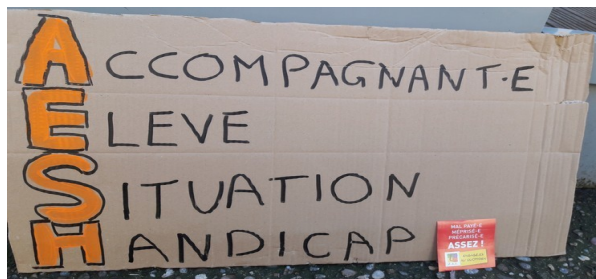 ACCOMPAGNANT·E
ELEVE
SITUATION
HANDICAP
MAL PAYÉ·E
MÉPRISÉ·E
PRÉCARISÉ·E
ASSEZ !